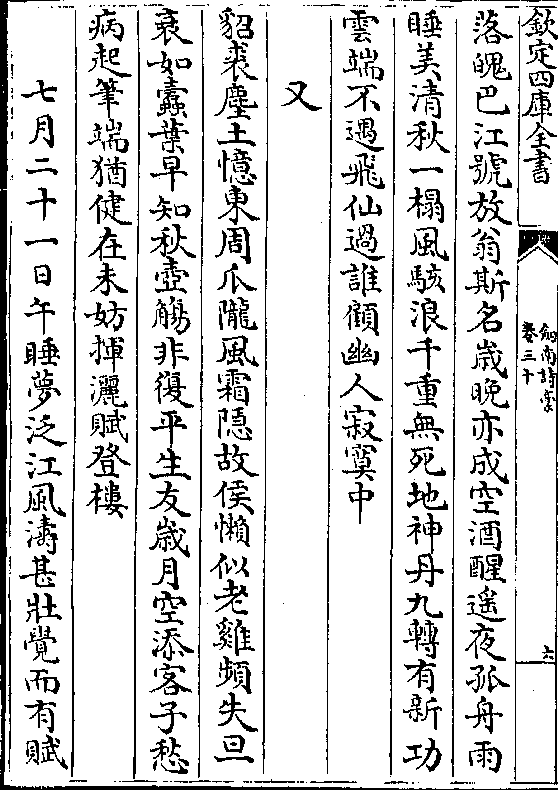 欽定四庫全書
劍南詩稾
卷三十
六
落魄巴江號放翁斯名歲晚亦成空酒醒遥夜孤舟雨
睡美清秋一榻風駭浪千重無死地神丹九轉有新功
雲端不遇飛仙過誰顧幽人寂寞中
又
貂裘塵土憶東周爪隴風霜隱故侯懶似老雞頻失旦
衰如蠹葉早知秋壺觴非復平生友歲月空添客子愁
病起筆端猶健在未妨揮灑賦登樓
七月二十一日午睡夢泛江風濤甚壯覺而有賦